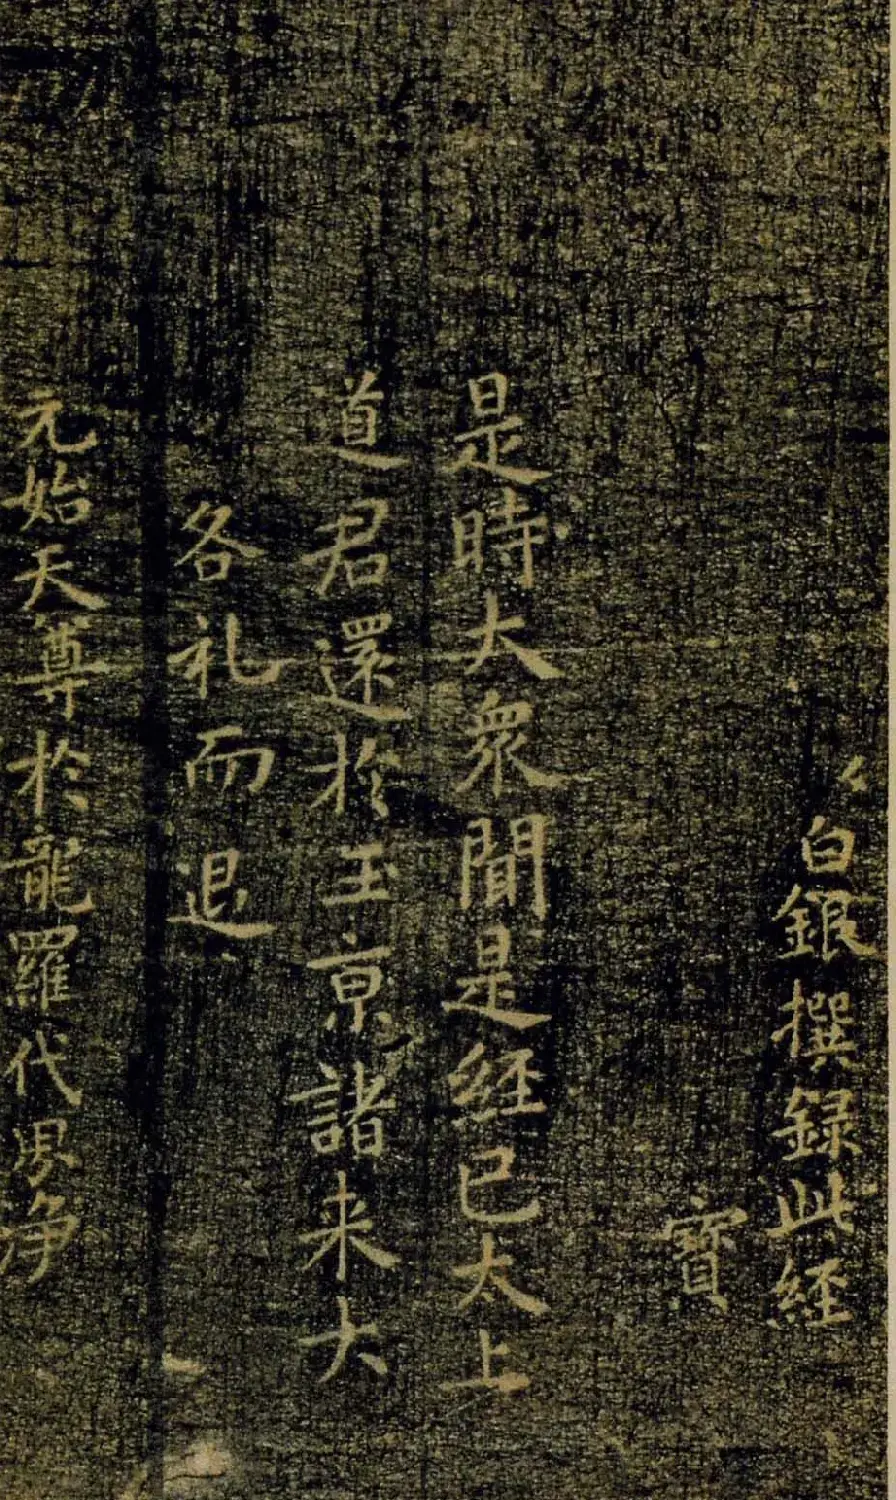 白銀撰録此経
寳
是時大衆聞是経已太上
道君還於玉京諸来大
各礼而退
元始天尊於龍羅代界浄